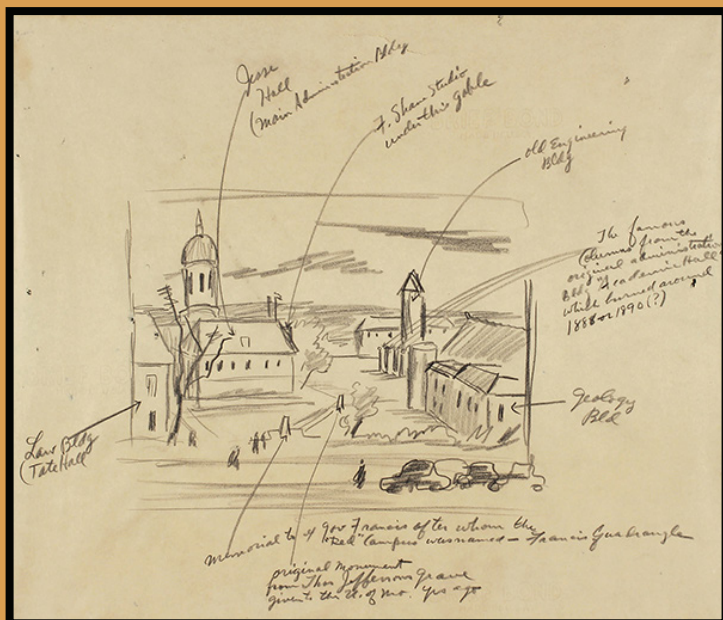 Jesse
Hall
(Main Administration Bldg
F. Shane Studio
under this gable
old Engineering
Bldg
The famous
Columns from the
original administration
Bldg of Academic Hall
which burned around
1888 or 1890 (?)
Geology
Bld
Law Bldg
(Tate Hall
Memorial to Gov Francis after whom the
"Red" Campus was named – Francis Quadrangle
original Monument
from Thos Jeffersons grave
given to the U. of Mo. yrs ago